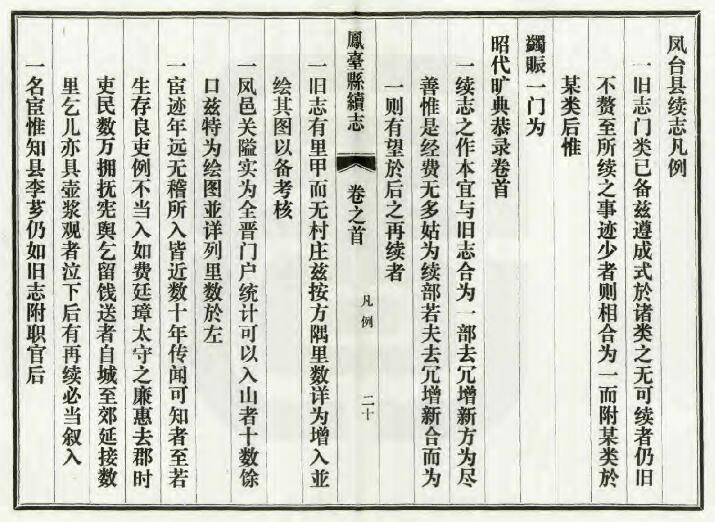 凤台县续志凡例
一旧志门类已备兹遵成式於诸类之无可续者仍旧
不赘至所续之事迹少者则相合为一而附某类於
某类后惟
蠲赈一门为
昭代旷典恭录卷首
一续志之作本宜与旧志合为一部去冗增新方为尽
善惟是经费无多姑为续部若夫去冗增新合而为
一则有望於后之再续者
鳳臺縣續志
卷之首
凡例
二十
一旧志有里甲而无村庄兹按方隅里数详为增入並
绘其图以备考核
一凤邑关隘实为全晋门户统计可以入山者十数馀
口兹特为绘图並详列里数於左
一宦迹年远无稽所入皆近数十年传闻可知者至若
生存良吏例不当入如费廷璋太守之廉惠去郡时
吏民数万拥抚宪舆乞留饯送者自城至郊延接数
里乞儿亦具壶浆观者泣下后有再续必当叙入
一名宦惟知县李芗仍如旧志附职官后